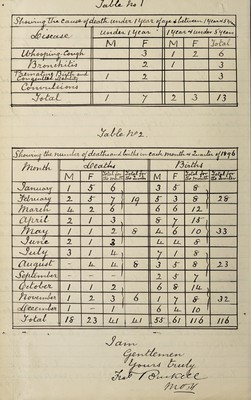 Table No 1
Showing the cause of death under 1 Year of age & between 1 year & 5 yrs
Disease under 1 Year 1 year & under 5 years
M F M F Total
Whooping Cough 3 1 2 6
Bronchitis 2 1 3
Premature Birth and Congenital Debility 1 2 3
Convulsions
Total 1 7 2 3 13
Table No 2
Showing the number of deaths and births in each month & quarter of 1896
Month Deaths Births
M F Total for the month Total for the quarter M F Total for the month Total for the quarter
January 1 5 6 3 5 8
February 2 5 7 19 5 3 8 28
March 4 2 6 6 6 12
April 2 1 3 8 7 15
May 1 2 8 4 6 10 33
June 2 1 3 4 4 8
July 3 1 4 7 1 8
August - 4 4 8 3 5 8 23
September - - - 2 5 7
October 1 1 2 6 8 14
November 1 2 3 6 1 7 8 32
December - 1 6 4 10
Total 18 23 41 41 55 61 116 116
I am
Gentlemen
Yours truly
MOH